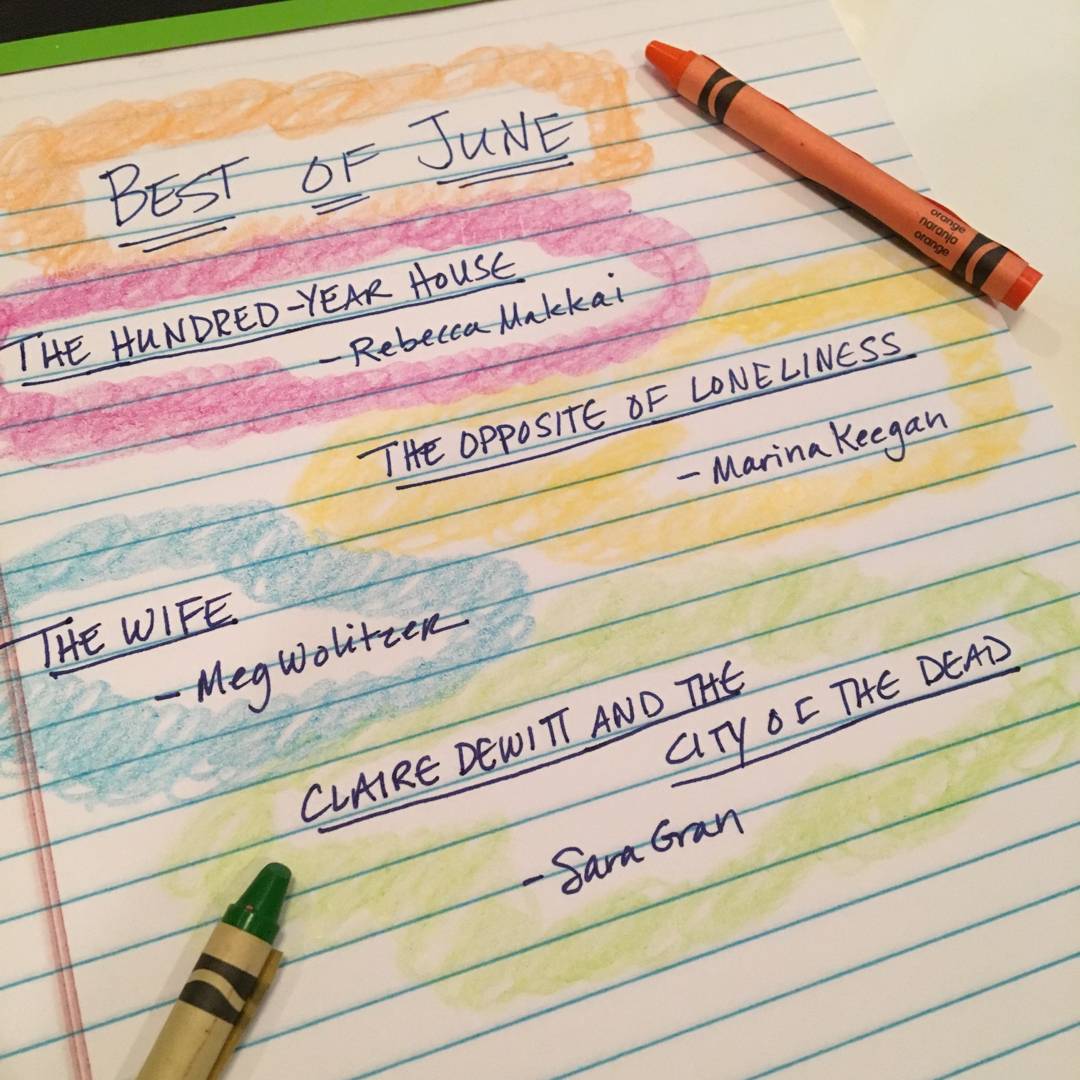 BEST OF JUNE
orange
naranja
orange
THE HUNDRED-YEAR HOUSE
- Rebecca Makkai
THE OPPOSITE OF LONELINESS
- Marina Keegan
THE WIFE
- Meg Wolitzer
CLAIRE DEWITT AND THE
CITY OF THE DEAD
- Sara Gran